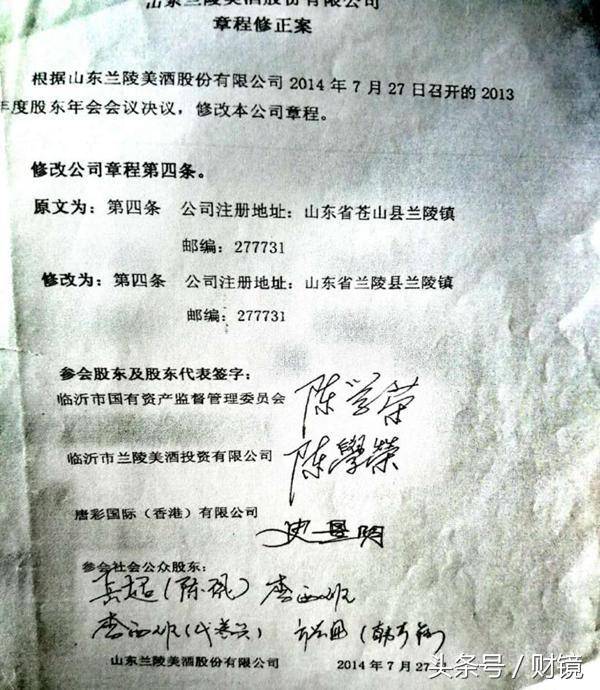 山东兰陵美酒股份有限公司
章程修正案
根据山东兰陵美酒股份有限公司 2014 年 7 月 27 日召开的 2013
年度股东年会会议决议，修改本公司章程。
修改公司章程第四条。
原文为：第四条 公司注册地址：山东省苍山县兰陵镇
邮编：277731
修改为：第四条 公司注册地址：山东省兰陵县兰陵镇
邮编：277731
参会股东及股东代表签字：
临沂市国有资产监督管理委员会 陈学荣
临沂市兰陵美酒投资有限公司 陈學榮
唐彩国际（香港）有限公司
参会社会公众股东：
山东兰陵美酒股份有限公司 2014 年 7 月 27
头条号／财镜